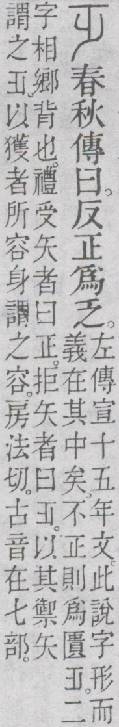 春秋傳曰。反正爲乏。左傳宣十五年文。此說字形而
義在其中矣。不正則爲匱乏。二
字相鄉背也。禮受矢者曰正。拒矢者曰乏。以其禦矢
謂之乏。以獲者所容身謂之容。房法切。古音在七部。